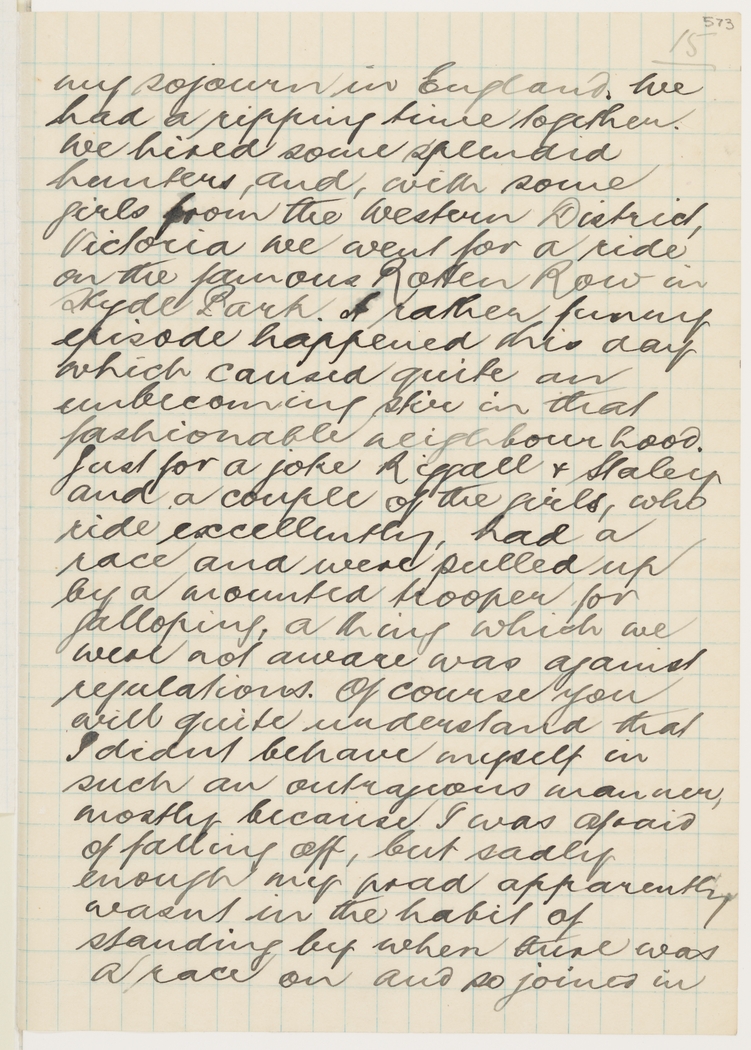 573
15
my sojourn in England. We
had a ripping time together.
We hired some splendid
hunters, and, with some
girls from the Western District,
Victoria we went for a ride
on the famous Rotten Row in
Hyde Park. A rather funny
episode happened this day
which caused quite an
unbecoming stir in that
fashionable neighbourhood.
Just for a joke Riggall & Staley
and a couple of the girls, who
ride excellently, had a
race and were pulled up
by a mounted trooper for
galloping, a thing which we
were not aware was against
regulations. Of course you
will quite understand that
I didnt behave myself in
such an outrageous manner,
mostly because I was afraid
of falling off, but sadly
enough my prad apparently
wasnt in the habit of
standing by when there was
a race on and so joined in